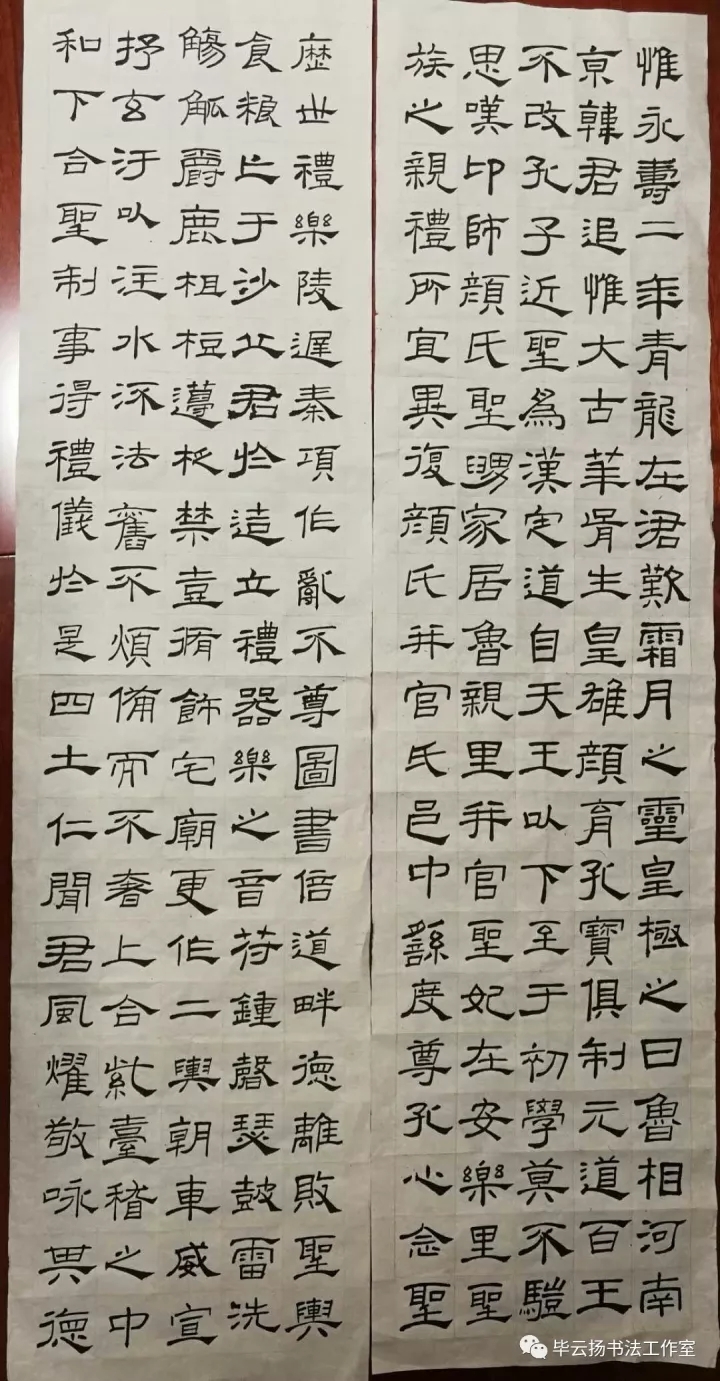 惟永壽二年青龍在涒歎霜月之靈皇極之日魯相河南
京韓君追惟大古華胥生皇雄顏育孔寶俱制元道百王
不改孔子近聖為漢定道自天王以下至于初學莫不驥
思嘆卬師顏氏聖舅家居魯親里并官聖妃在安樂里聖
族之親禮所宜異復顏氏并官氏邑中繇發尊孔心念聖
歷世禮樂陵遲秦項作亂不尊圖書倍道畔德離敗聖輿
食粮亡于沙丘君於造立禮器樂之音符鍾磬瑟鼓雷洗
觴觚爵鹿柤梪籩柉禁壺脩飾宅廟更作二輿朝車威宣
抒玄汙以注水流法舊不煩備而不奢上合紫臺稽之中
和下合聖制事得禮儀於是四土仁聞君風燿敬咏其德
毕云扬书法工作室